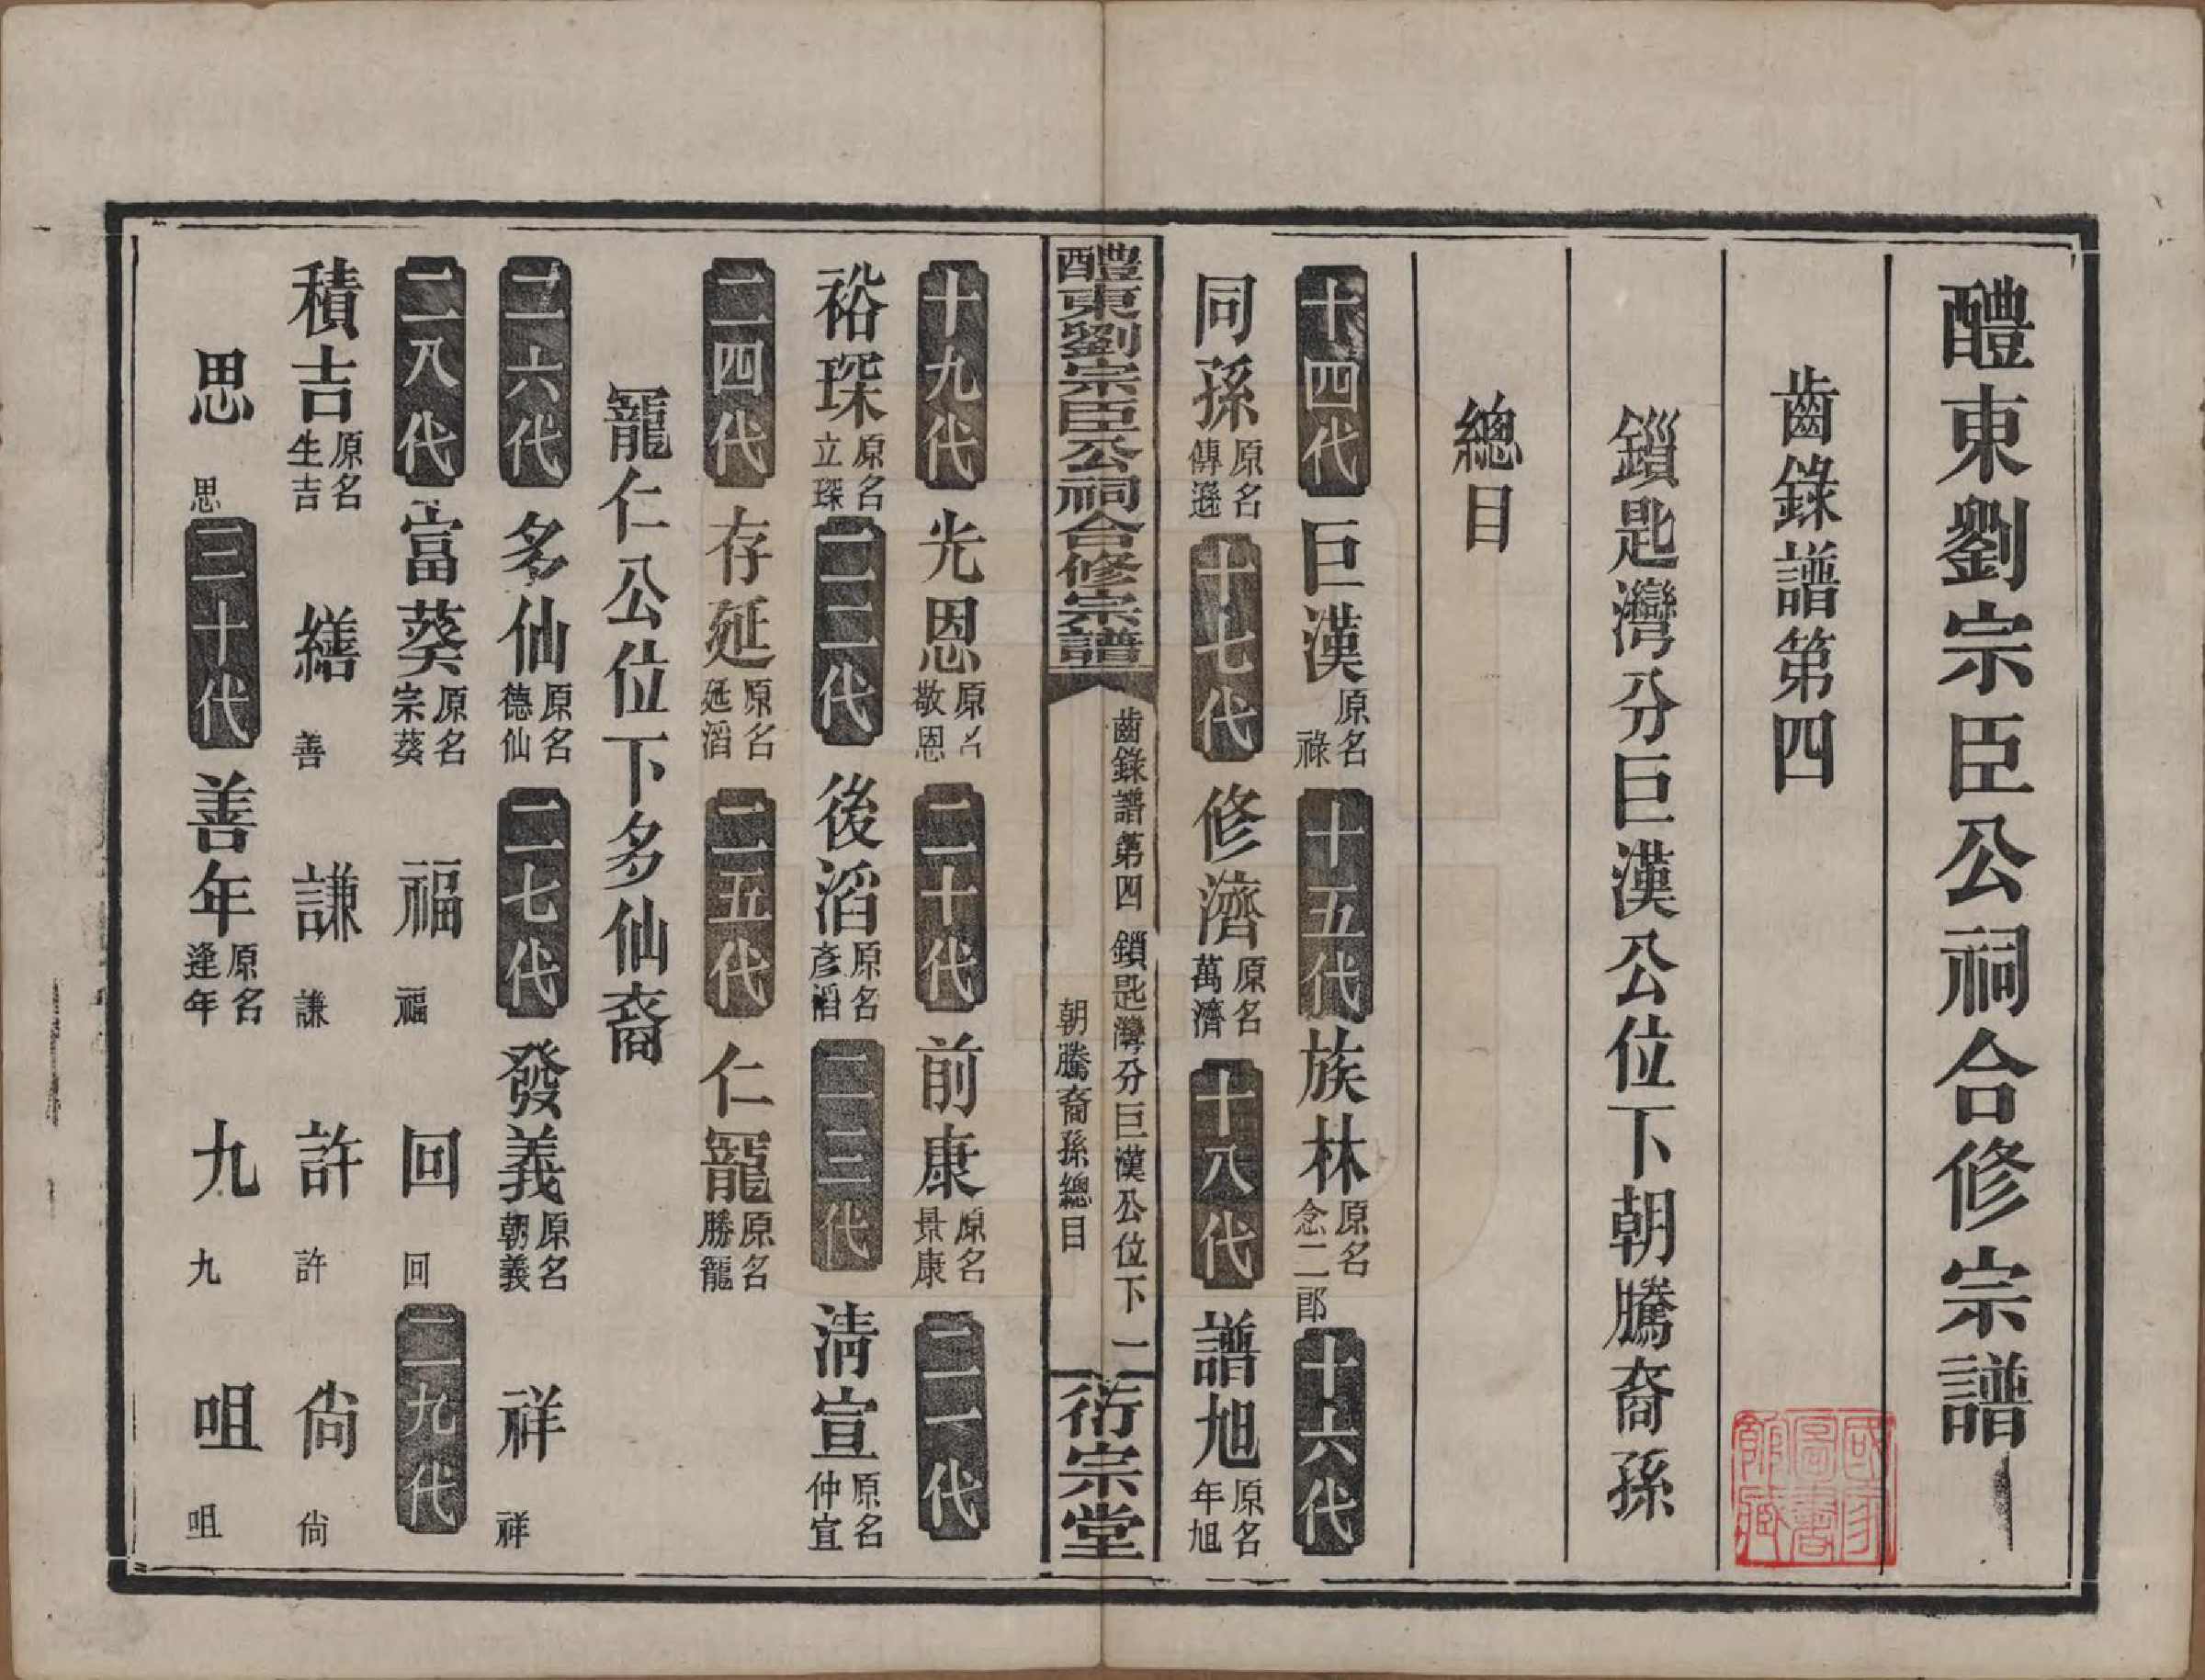 醴東劉宗臣公祠合修宗譜
齒錄譜第四
鎖匙灣分巨漢公位下朝騰裔孫
總目
十四代 巨漢 原名祿 十五代 族林 原名念二郎 十六代
同孫 原名傳遜 十七代 修濟 原名萬濟 十八代 譜旭 原名年旭
醴東劉宗臣公祠合修宗譜 齒錄譜第四 鎖匙灣分巨漢公位下 一
朝騰裔孫總目
衍宗堂
十九代 光恩 原名敬恩 二十代 前康 原名景康 二一代
裕琛 原名立琛 二二代 後滔 原名彥滔 二三代 清宣 原名仲宣
二四代 存延 原名延滔 二五代 仁寵 原名勝寵
寵仁公位下多仙裔
二六代 多仙 原名德仙 二七代 發義 原名朝義 祥 祥
二八代 富葵 原名宗葵 福 福 回 回 二九代
積吉 原名生吉 繕 善 謙 謙 許 許 尙 尙
思 思 三十代 善年 原名逢年 九 九 咀 咀
國家圖書館藏